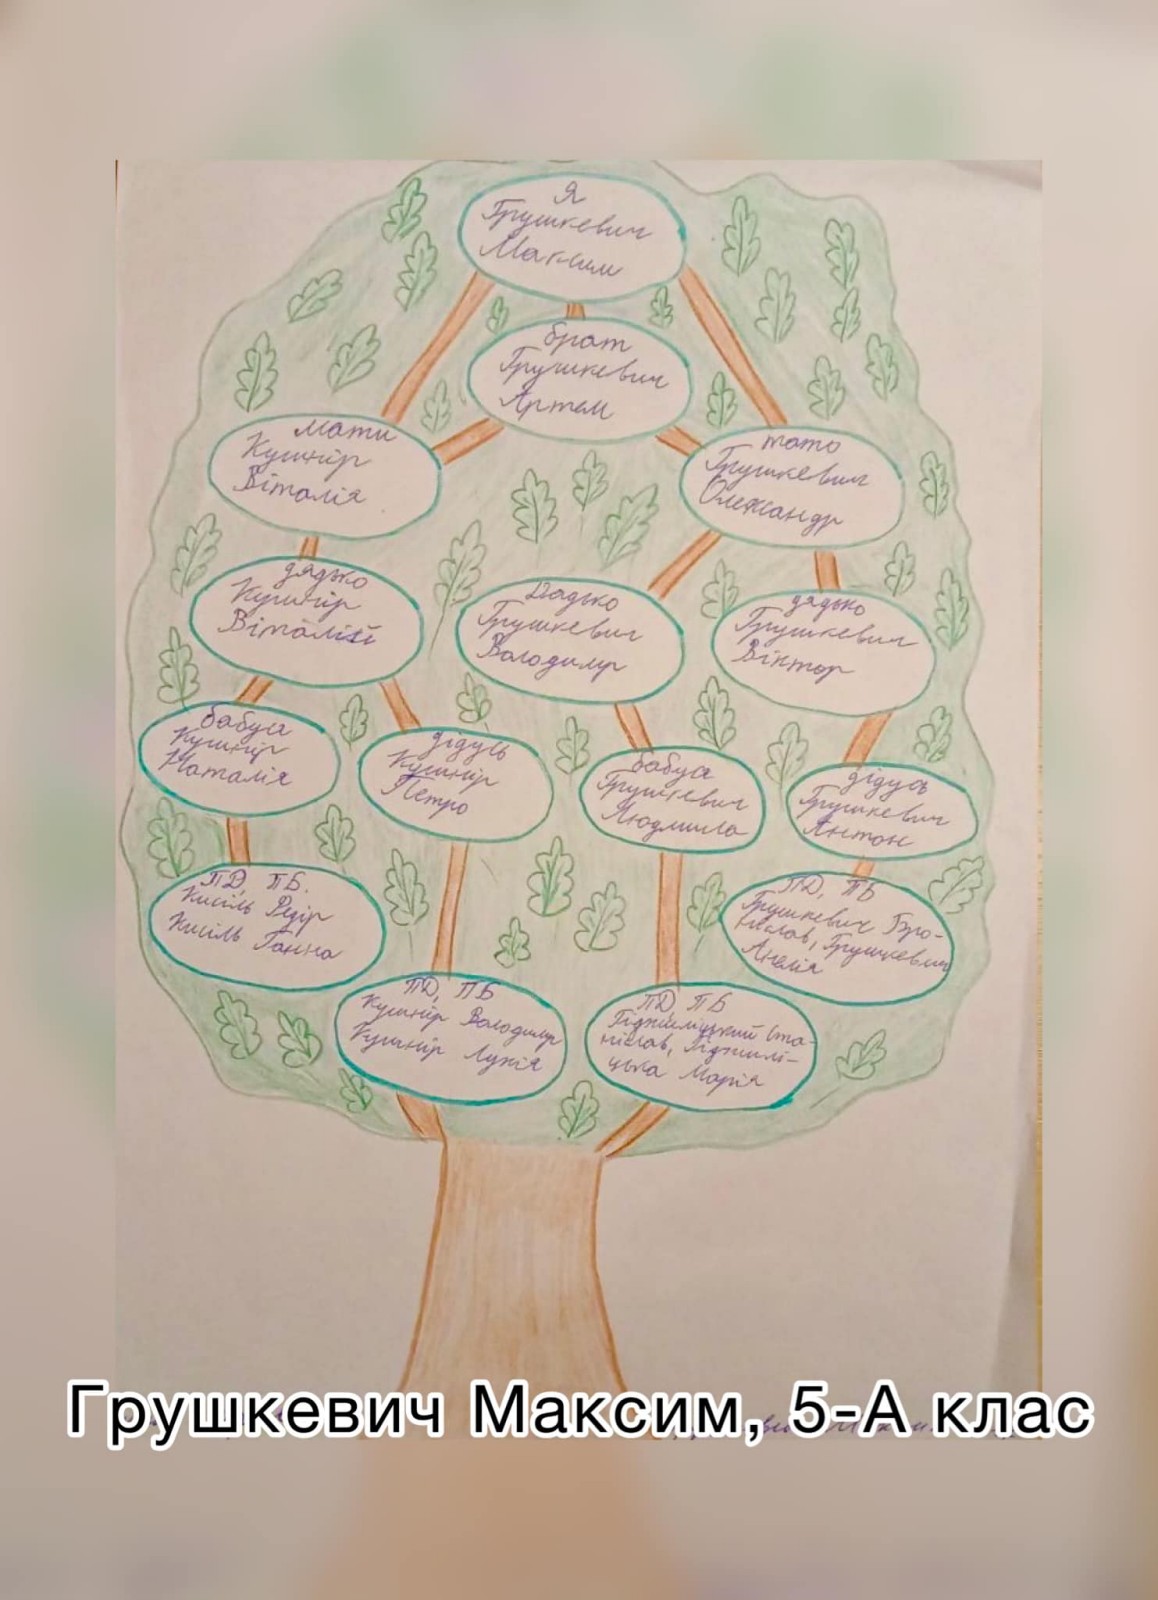 Я
Грушкевич
Максим
брат
Грушкевич
Артем
мати
Кушнір
Віталія
тато
Грушкевич
Олександр
дядько
Кушнір
Віталій
Дядько
Грушкевич
Володимир
дядько
Грушкевич
Віктор
бабуся
Кушнір
Наталія
дідусь
Кушнір
Петро
бабуся
Грушкевич
Людмила
дідусь
Грушкевич
Антон
ПД, ПБ.
Кисіль Федір
Кисіль Ганна
ПД, ПБ
Грушкевич Бро-
ніслав, Грушкевич
Анелія
ПД, ПБ
Кушнір Володимир
Кушнір
ПД, ПБ
Ста-
ніслав,
цька Марія
Грушкевич Максим, 5-А клас